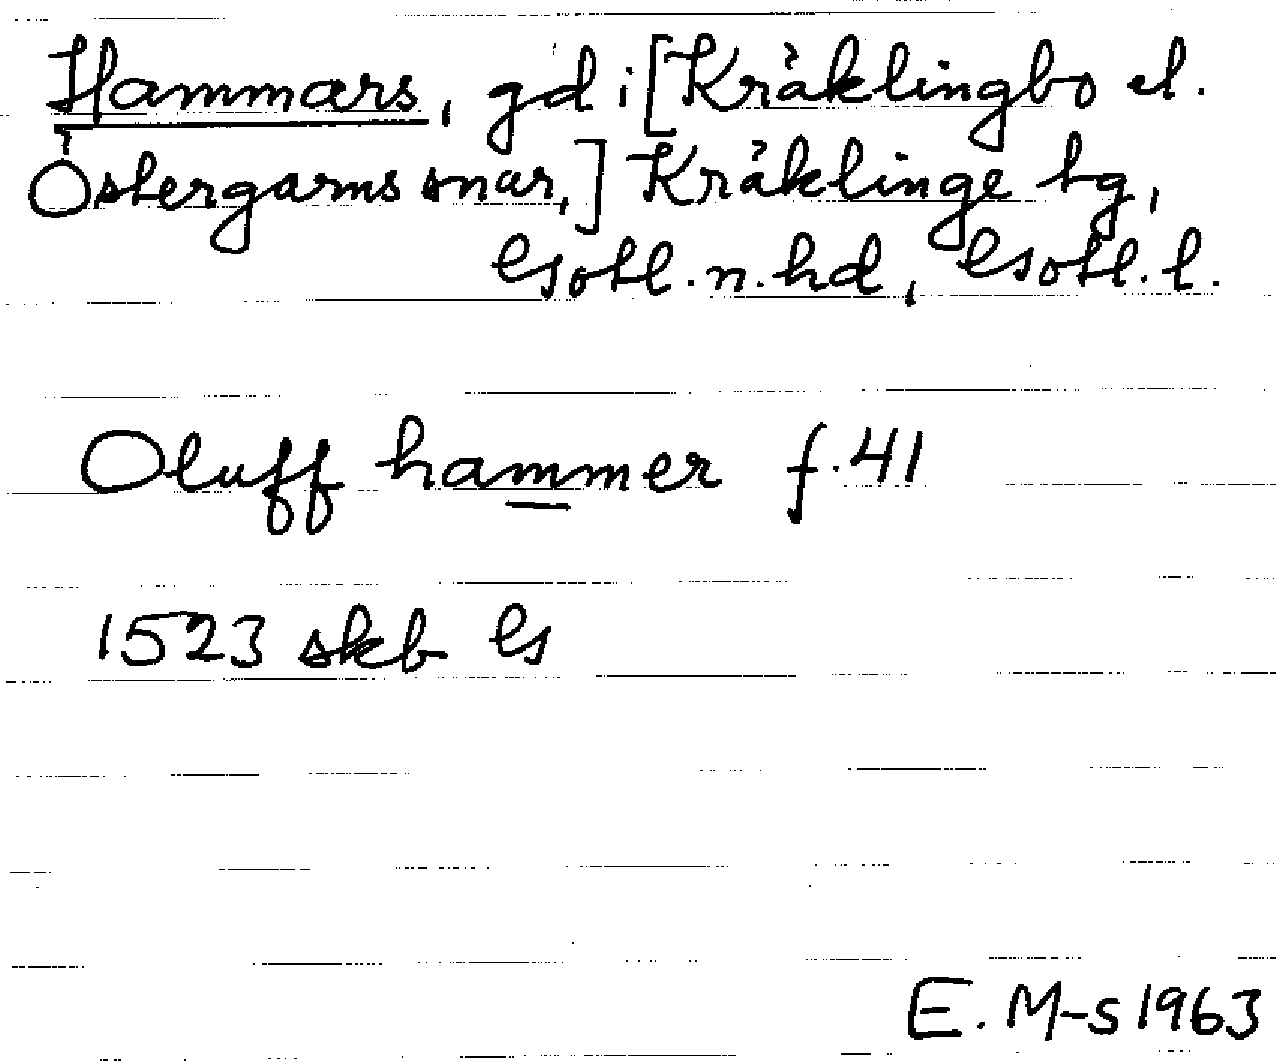 Hammars, gd i [Kräklingbo el.
Östergarns snar,] Kräklinge tg,
Gotl. n. hd, Gotl. l.
Oluff hammer f. 41
1523 skb G
E. M-s 1963